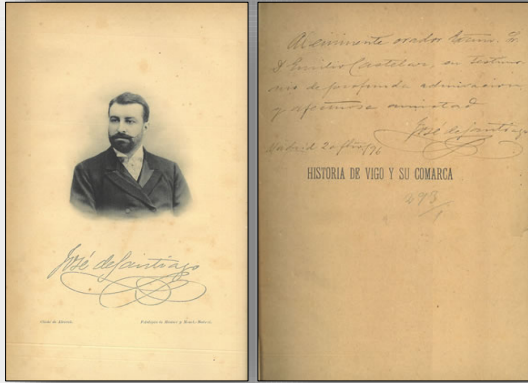 José de Santiago
Al eminente orador Excmo. Sr.
D Emilio Castelar, en testimo
nio de profunda admiracion
y afectuosa amistad
José de Santiago
Madrid 20
HISTORIA DE VIGO Y SU COMARCA